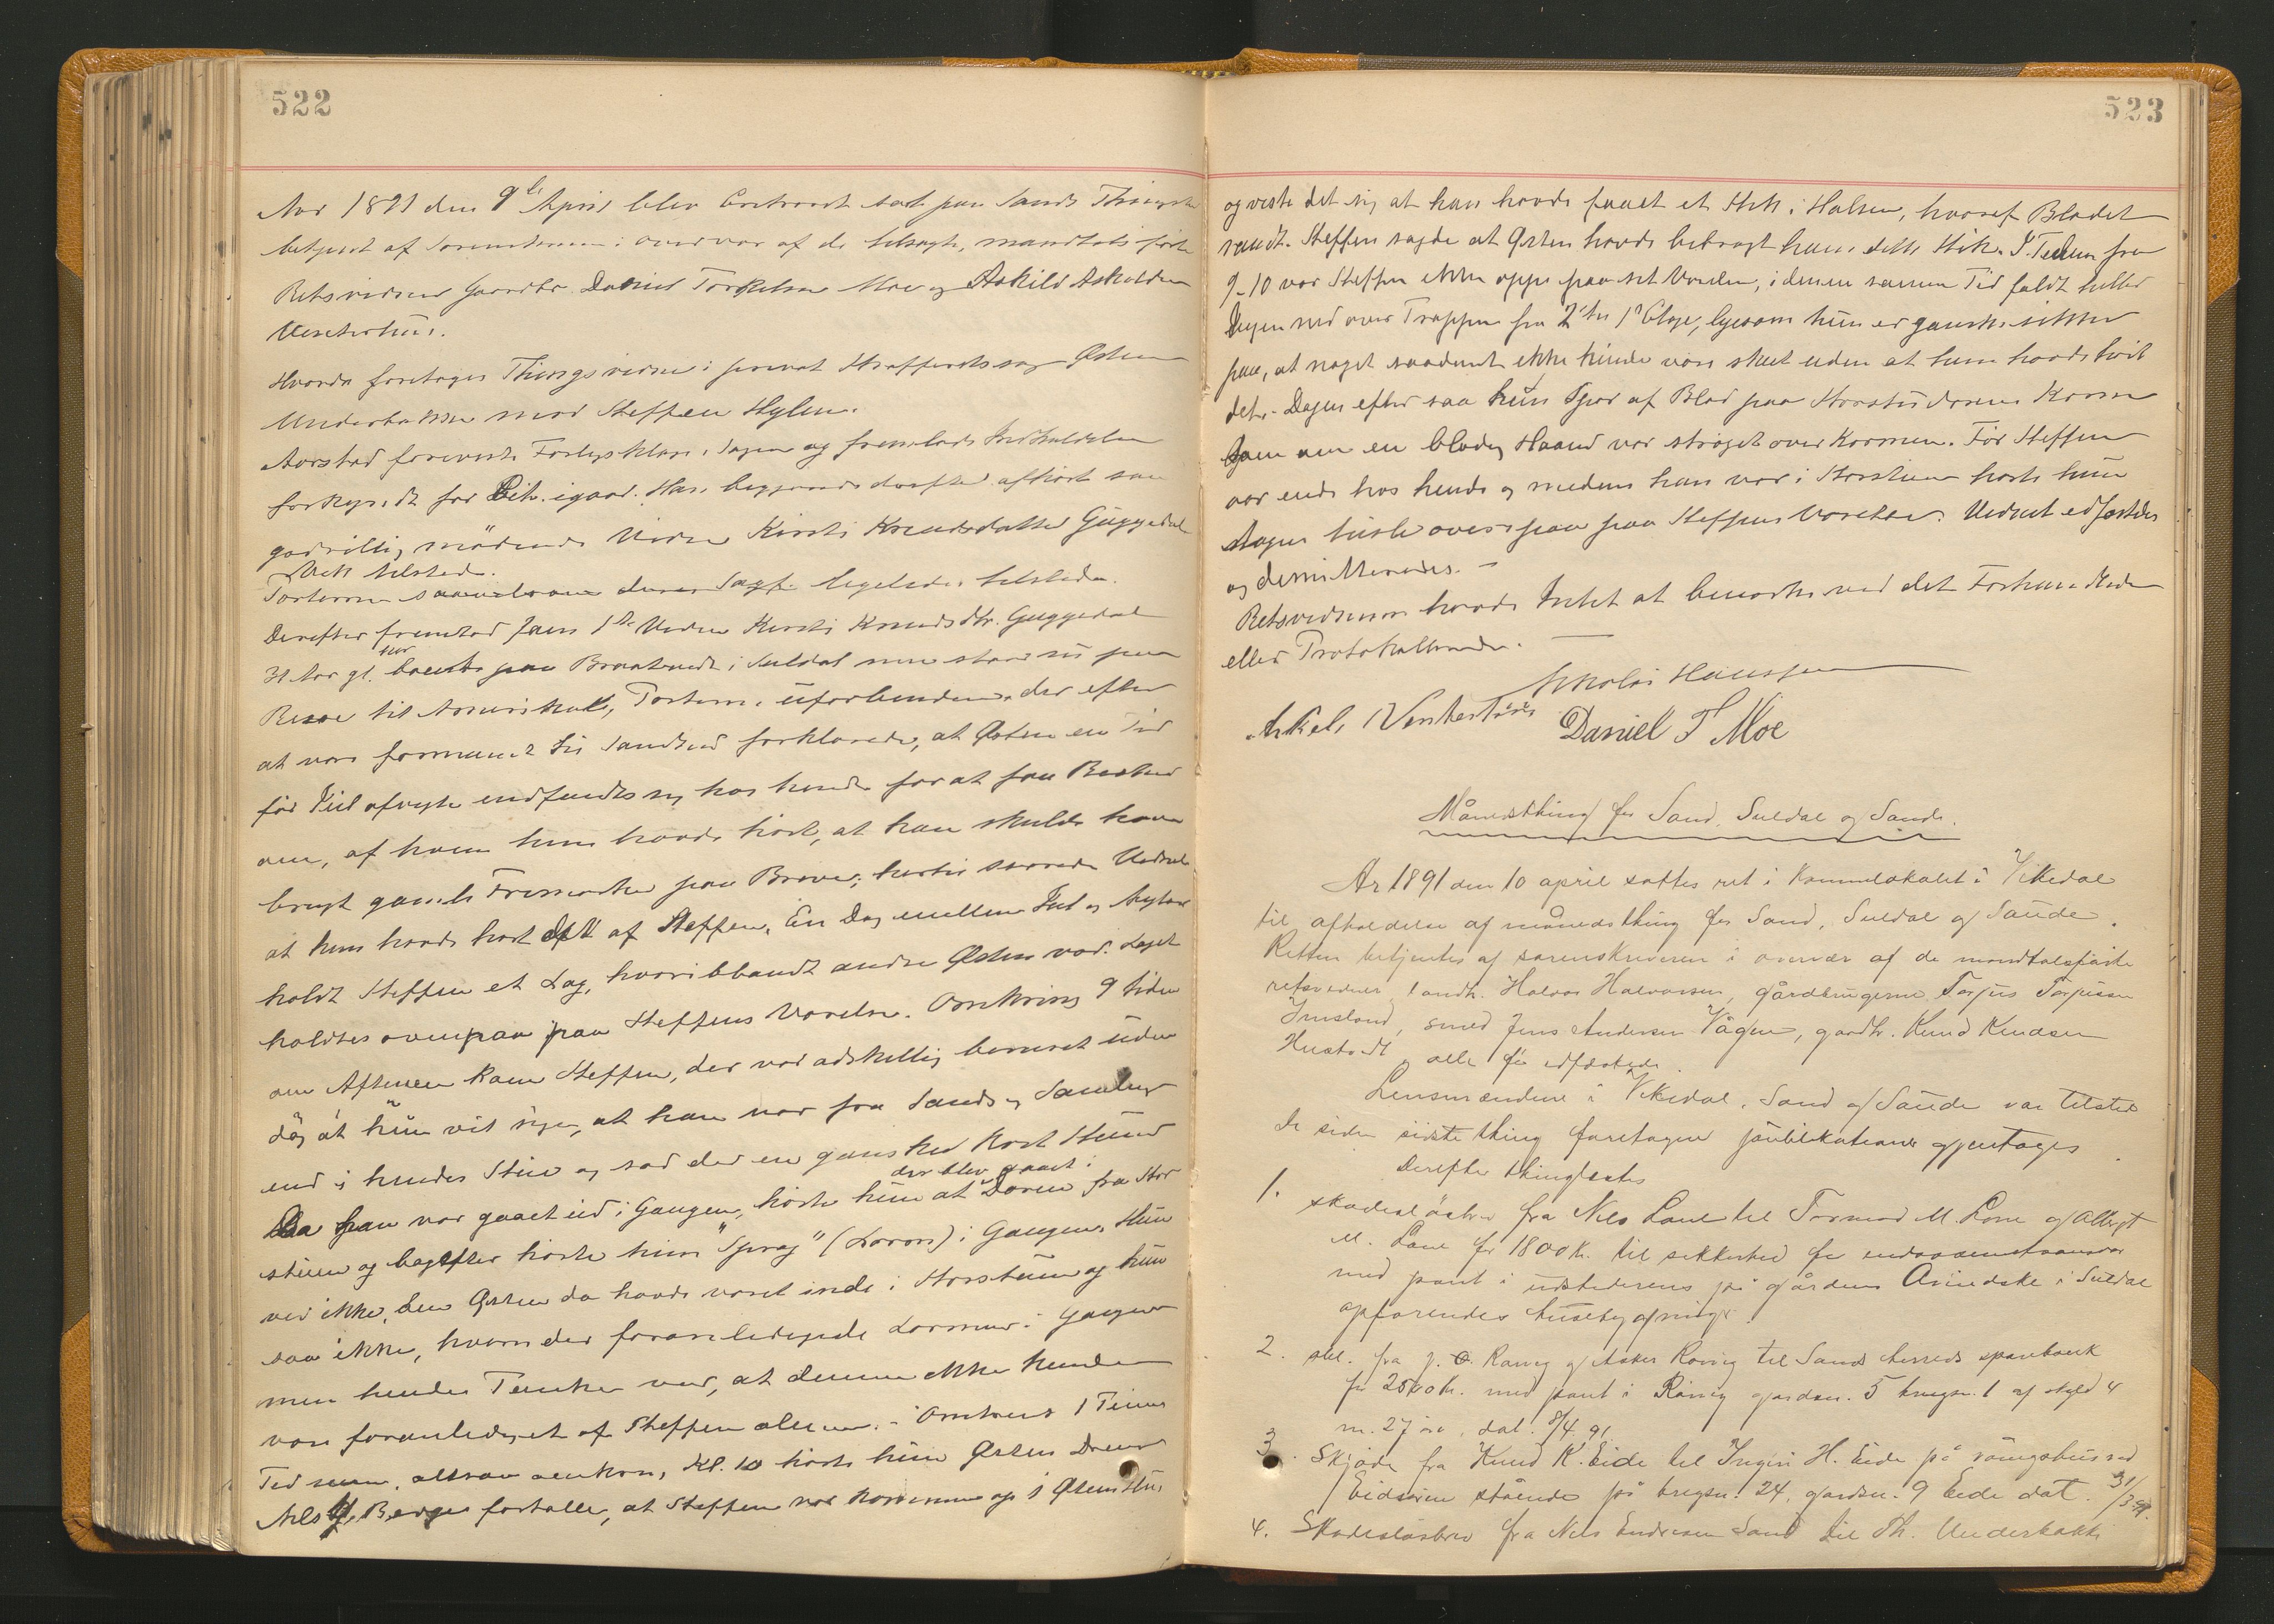 522
Aar 1891 den 9de April blev Extraret sat paa Sands Thingsted
betjent af Sorenskriveren i overvær af de tilsagte, mandtalsførte
Retsvidner Gaardbr. Daniel Torkelsen Moe og Askild Askeldsen
Vesterstuis.
Hvorda foretoges Thingsvidne i privat Straffesag Østen
Underbakke mod Steffen Hylen.
Aarstad foreviste Forligsklage i Sagen og fremlagde
forkyndt for igaar. Han begjærede derefter afhørt som
godvillig mødende Vidne Kirsti Knudsdatter Guggedal
Vek tilstede.
Parterne saavelsom deres Sagf. ligeledes tilstede.
Derefter fremstod som 1ste Vidne Kirsti Knudsdtr. Guggedal
nu
31 Aar gl. boende paa Braatveit i Suldal men staar nu paa
Reise til Amerika, Parterne uforbunden, der efter
at være formanet til Sandhed forklarede, at Østen en Tid
før Jul afvigte indfandt sig hos hende for at faa Besked
om, af hvem hun havde hørt, at han skulde have
brugt gamle Frimærker paa Breve; hertil svarede Vidnet
at hun havde hørt det af Steffen. En Dag mellem Jul og Nytaar
holdt Steffen et Lag, hvoriblandt andre Østen var. Laget
holdtes ovenpaa paa Steffens Værelse. Omkring 9 tiden
om Aftenen kom Steffen, der var adskillig beruset uden
dog at hun vil sige, at han var fra Sands og Samling
ind i hendes Stue og sad der en ganske kort Stund
der blev gaaet i
Da han var gaaet ud i Gangen, hørte hun at Døren fra Stor
stuen og bagefter hørte hun "Sprag" (Larm) i Gangen. Hun
ved ikke, om Østen da havde været inde i Storstuen og hun
saa ikke, hvem der foranledigede Larmen i Gangen
men hendes Tanke var, at denne ikke kunde
være foranlediget af Steffen alene. Omtrent 1 Times
Tid senere, altsaa omkring Kl. 10 hørte hun Østens Dreng
Nils Berge fortælle, at Steffen var kommen op i
523
og viste det sig at han havde faaet et Stik i Halsen, hvoraf Blodet
randt. Steffen sagde at Østen havde bibragt ham dette Stik. I Tiden fra
9-10 var Steffen ikke oppe paa sit Værelse, i denne samme Tid faldt heller
Ingen ned over Trappen fra 2den til 1ste Etage, ligesom hun er ganske sikker
paa, at noget saadant ikke kunde være skeet uden at hun havde hørt
det. Dagen efter saa hun Spor af Blod paa Storstuedørens Karm
som om en blodig Haand var strøget over Karmen. Før Steffen
var inde hos hende og medens han var i Storstuen hørte hun
Ingen tusle ovenpaa paa Steffens Værelse. Vidnet edfæstedes
og demitteredes. –
Retsvidnerne havde Intet at bemærke ved det Forhandlede
eller Protokollerede.
Nikolai Hanssen
Askel Vesterstuis Daniel T Moe
Månedsthing for Sand, Suldal og Saude.
År 1891 den 10 april sattes ret i kommunelokalet i Vikedal
til afholdelse af månedsthing for Sand, Suldal og Saude.
Retten betjentes af sorenskriveren i overvær af de mandtalsførte
retsvidner landh. Halvor Halvorsen, gårdbrugerne Torjus Torjusen
Imsland, smed Jens Andersen Vågen, gardbr. Knud Knudsen
Hustvedt alle før edfæstede.
Lensmændene i Vikedal, Sand og Saude var tilstede
De siden sidste thing foretagne publikationer gjentages
Derefter thinglæstes
1. Skadesløsbrev fra Nils Lone til Tormod M. Lone og Albrigt
M. Lone for 1800 kr. til sikkerhed for
med pant i udstederens på gårdens i Suldal
opførendes husebygninger.
2. skl. fra J. O. Rørvig og Asker Rørvig til Sands herreds sparebank
for 2500 kr. med pant i Rørvig gardsn. 5 brugsn. 1 af skyld 4
m. 27 øre, dat. 8/4 91.
3. Skjøde fra Knud K. Eide til Ingeri H. Eide på våningshus ved
stående på brugsn. 24, gardsn. 9 Eide dat. 31/3 91.
4. Skadesløsbrev fra Nils Endresen Sand til Th. Underbakke